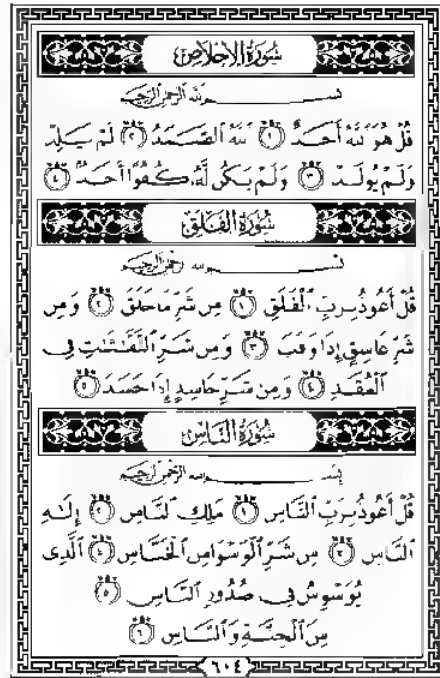 سُورَةُ الإِخْلَاصِ
بِسْمِ اللَّهِ الرَّحْمَٰنِ الرَّحِيمِ
قُلْ هُوَ ٱللَّهُ أَحَدٌ ١ ٱللَّهُ ٱلصَّمَدُ ٢ لَمْ يَلِدْ
وَلَمْ يُولَدْ ٣ وَلَمْ يَكُن لَّهُۥ كُفُوًا أَحَدٌۢ ٤
سُورَةُ الْفَلَقِ
بِسْمِ اللَّهِ الرَّحْمَٰنِ الرَّحِيمِ
قُلْ أَعُوذُ بِرَبِّ ٱلْفَلَقِ ١ مِن شَرِّ مَا خَلَقَ ٢ وَمِن
شَرِّ غَاسِقٍ إِذَا وَقَبَ ٣ وَمِن شَرِّ ٱلنَّفَّٰثَٰتِ فِى
ٱلْعُقَدِ ٤ وَمِن شَرِّ حَاسِدٍ إِذَا حَسَدَ ٥
سُورَةُ النَّاسِ
بِسْمِ اللَّهِ الرَّحْمَٰنِ الرَّحِيمِ
قُلْ أَعُوذُ بِرَبِّ ٱلنَّاسِ ١ مَلِكِ ٱلنَّاسِ ٢ إِلَٰهِ
ٱلنَّاسِ ٣ مِن شَرِّ ٱلْوَسْوَاسِ ٱلْخَنَّاسِ ٤ ٱلَّذِى
يُوَسْوِسُ فِى صُدُورِ ٱلنَّاسِ ٥
مِنَ ٱلْجِنَّةِ وَٱلنَّاسِ ٦
٦٠٤